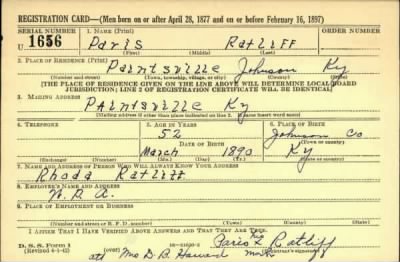 REGISTRATION CARD—(Men born on or after April 28, 1877 and on or before February 16, 1897)
SERIAL NUMBER 1. NAME (Print)
U 1656 Paris Ratliff
(First) (Middle) (Last)
2. PLACE OF RESIDENCE (Print)
Paintsville Johnson Ky
(Number and street) (Town, township, village, or city) (County) (State)
[THE PLACE OF RESIDENCE GIVEN ON THE LINE ABOVE WILL DETERMINE LOCAL BOARD
JURISDICTION; LINE 2 OF REGISTRATION CERTIFICATE WILL BE IDENTICAL]
3. MAILING ADDRESS
Paintsville Ky
[Mailing address if other than place indicated on line 2. If same insert word same]
4. TELEPHONE 5. AGE IN YEARS 6. PLACE OF BIRTH
52 Johnson Co
DATE OF BIRTH (Town or county)
March 1890 Ky
(Exchange) (Number) (Mo.) (Day) (Yr.) (State or country)
7. NAME AND ADDRESS OF PERSON WHO WILL ALWAYS KNOW YOUR ADDRESS
Rhoda Ratliff
8. EMPLOYER'S NAME AND ADDRESS
W. P. A.
9. PLACE OF EMPLOYMENT OR BUSINESS
(Number and street or R. F. D. number) (Town) (County) (State)
I AFFIRM THAT I HAVE VERIFIED ABOVE ANSWERS AND THAT THEY ARE TRUE.
D. S. S. Form 1 Paris X Ratliff
(Revised 4-1-42) mark
Mrs D. B.